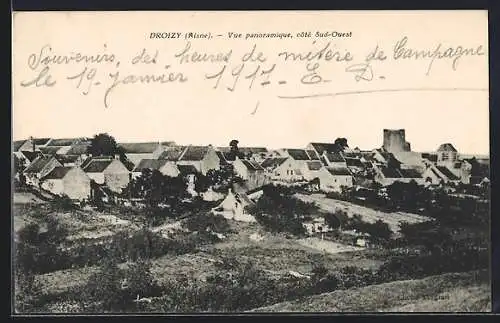 DROIZY (Aisne). - Vue panoramique, côté Sud-Ouest
Souvenirs, des heures de misère de Campagne
le 19 janvier 1917. E. D.